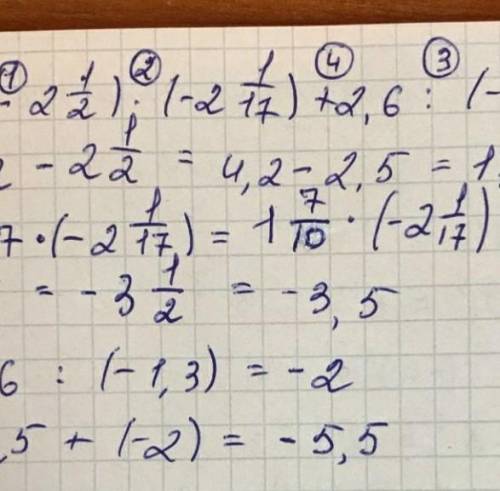 ① ② ④ ③
- 2 1/2) · (-2 1/17) + 2,6 : (-
2 - 2 1/2 = 4,2 - 2,5 = 1,
7 · (-2 1/17) = 1 7/10 · (-2 1/17)
= -3 1/2 = -3,5
6 : (-1,3) = -2
,5 + (-2) = -5,5